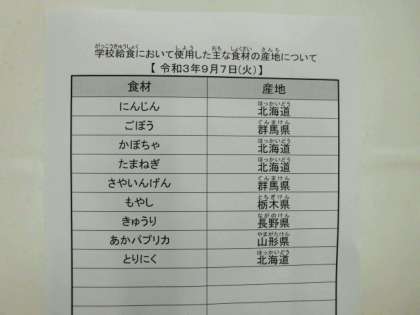 学校給食において使用した主な食材の産地について
【 令和3年9月7日(火)】
食材 産地
にんじん 北海道
ごぼう 群馬県
かぼちゃ 北海道
たまねぎ 北海道
さやいんげん 群馬県
もやし 栃木県
きゅうり 長野県
あかパプリカ 山形県
とりにく 北海道